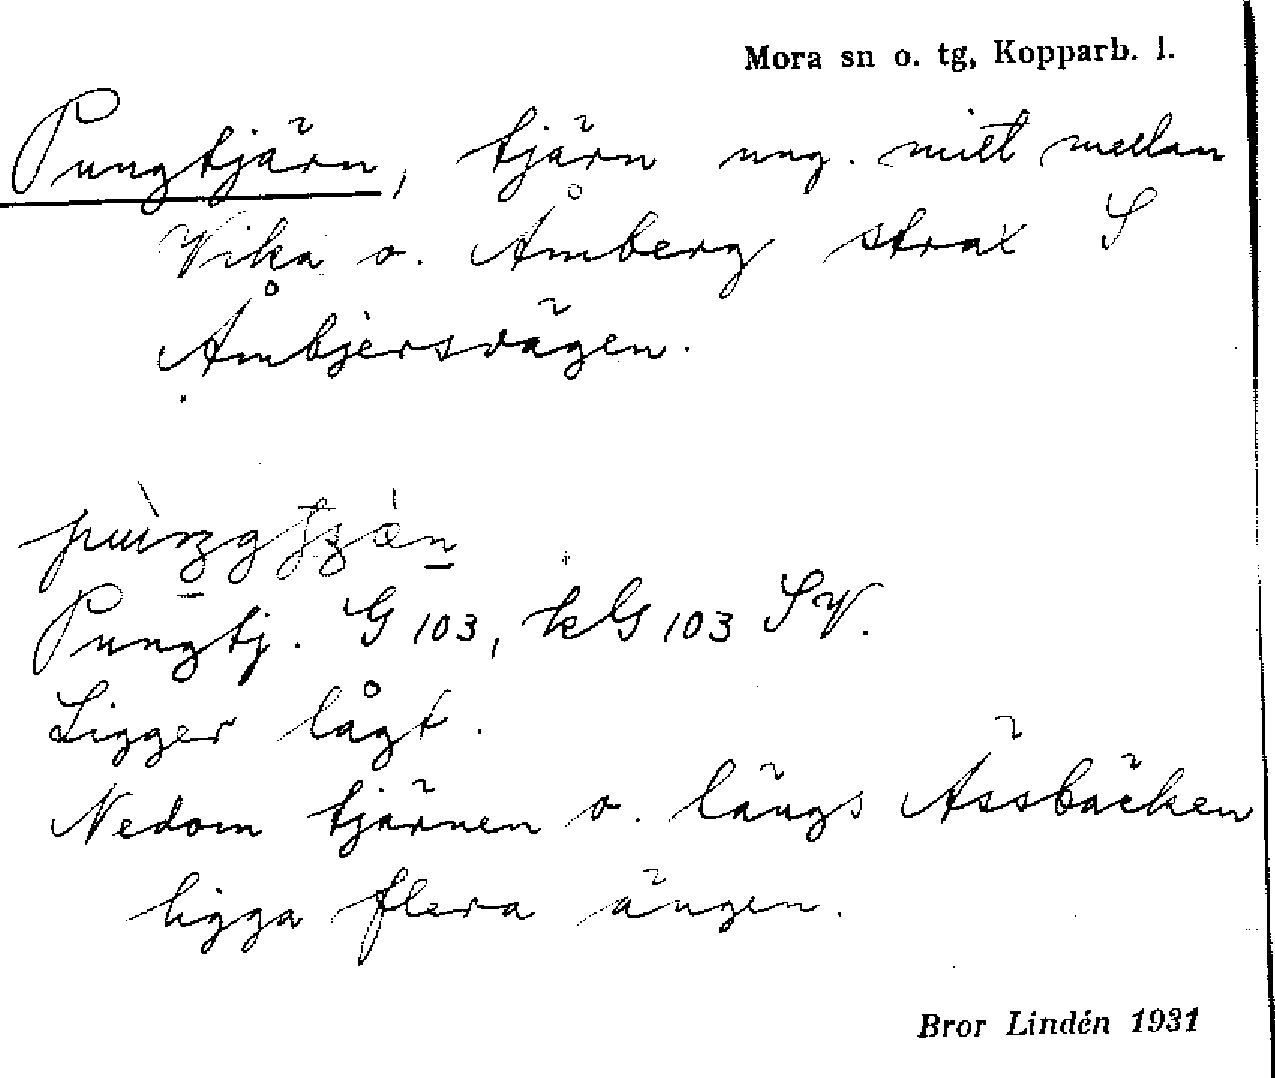 Mora sn o. tg, Kopparb. l.
Pungtjärn, tjärn ung. mitt mellan
Vika o. Åmberg strax S
Åmbjersvägen.
Pungtj. G 103, kG 103 SV.
Ligger lågt.
Nedom tjärnen o. längs Ässbäcken
ligga flera ängen.
Bror Lindén 1931